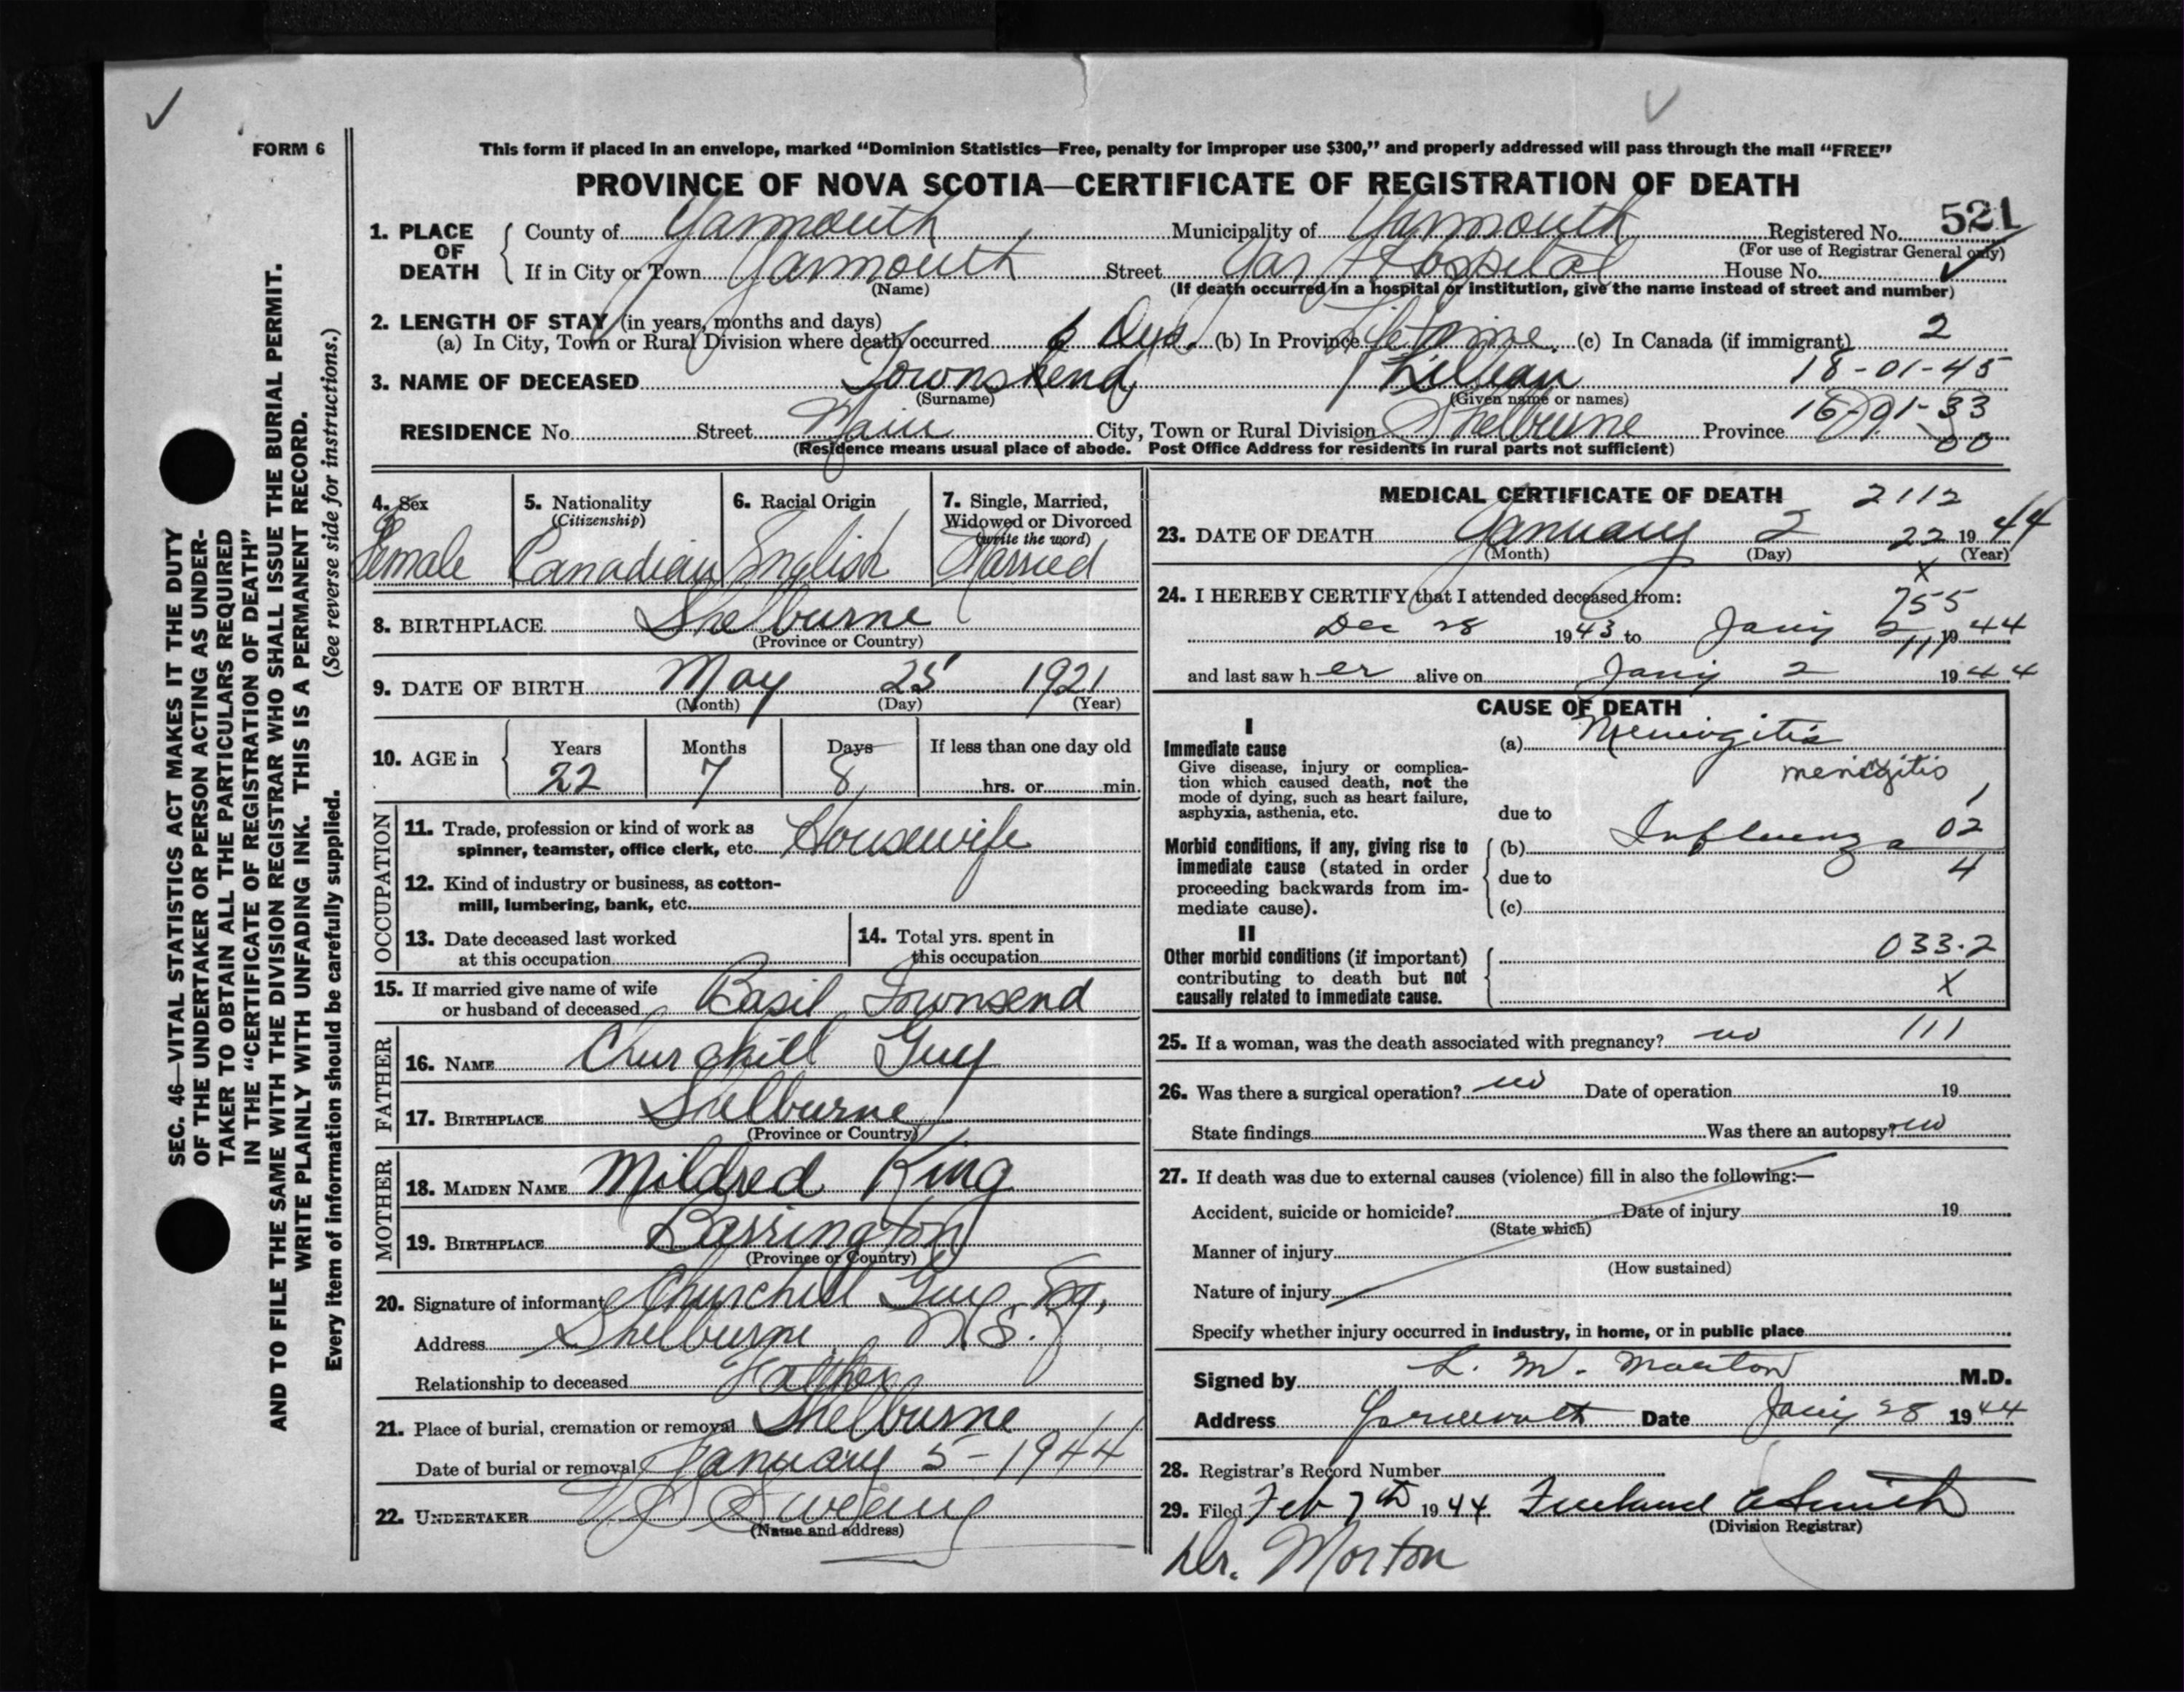 FORM 6
This form if placed in an envelope, marked “Dominion Statistics—Free, penalty for improper use $300,” and properly addressed will pass through the mail “FREE”
PROVINCE OF NOVA SCOTIA—CERTIFICATE OF REGISTRATION OF DEATH
521
1. PLACE OF DEATH County of Yarmouth Municipality of Yarmouth Registered No.
(For use of Registrar General only)
If in City or Town Yarmouth Street Yar Hospital House No.
(Name) (If death occurred in a hospital or institution, give the name instead of street and number)
2. LENGTH OF STAY (in years, months and days)
(a) In City, Town or Rural Division where death occurred 6 Dys. (b) In Province Lifetime. (c) In Canada (if immigrant) 2
3. NAME OF DECEASED Townshend Lillian 18-01-45
(Surname) (Given name or names)
16-01-33
RESIDENCE No. Street Main City, Town or Rural Division Shelburne Province 00
(Residence means usual place of abode. Post Office Address for residents in rural parts not sufficient)
4. Sex Female
5. Nationality (Citizenship) Canadian
6. Racial Origin English
7. Single, Married, Widowed or Divorced (write the word) Married
8. BIRTHPLACE Shelburne
(Province or Country)
9. DATE OF BIRTH May 25 1921
(Month) (Day) (Year)
10. AGE in Years Months Days If less than one day old
22 7 8 hrs. or min.
OCCUPATION
11. Trade, profession or kind of work as
spinner, teamster, office clerk, etc. Housewife
12. Kind of industry or business, as cotton-
mill, lumbering, bank, etc.
13. Date deceased last worked
at this occupation
14. Total yrs. spent in
this occupation
15. If married give name of wife
or husband of deceased Basil Townsend
FATHER
16. NAME Churchill Guy
17. BIRTHPLACE Shelburne
(Province or Country)
MOTHER
18. MAIDEN NAME Mildred King
19. BIRTHPLACE Barrington
(Province or Country)
20. Signature of informant Churchill Guy
Address Shelburne, N.S.
Relationship to deceased Father
21. Place of burial, cremation or removal Shelburne
Date of burial or removal January 5-1944
22. UNDERTAKER
(Name and address)
MEDICAL CERTIFICATE OF DEATH 2112
23. DATE OF DEATH January 2 22 1944
(Month) (Day) (Year)
X
24. I HEREBY CERTIFY that I attended deceased from: 755
Dec 28 1943 to Jany 2 1944
111
and last saw her alive on Jany 2 1944
CAUSE OF DEATH
I
Immediate cause
Give disease, injury or complica-
tion which caused death, not the
mode of dying, such as heart failure,
asphyxia, asthenia, etc.
(a) Meningitis
menigitis
due to
Morbid conditions, if any, giving rise to
immediate cause (stated in order
proceeding backwards from im-
mediate cause).
(b) Influenza 02
due to 4
(c)
II
Other morbid conditions (if important)
contributing to death but not
causally related to immediate cause.
033.2
X
25. If a woman, was the death associated with pregnancy? no 111
26. Was there a surgical operation? no Date of operation 19
State findings Was there an autopsy? no
27. If death was due to external causes (violence) fill in also the following:—
Accident, suicide or homicide? Date of injury 19
(State which)
Manner of injury
(How sustained)
Nature of injury
Specify whether injury occurred in industry, in home, or in public place
Signed by L. M. Morton M.D.
Address Yarmouth Date Jany 28 1944
28. Registrar's Record Number
29. Filed Feb 7th 1944 Smith
(Division Registrar)
Dr. Morton
SEC. 46—VITAL STATISTICS ACT MAKES IT THE DUTY
OF THE UNDERTAKER OR PERSON ACTING AS UNDER-
TAKER TO OBTAIN ALL THE PARTICULARS REQUIRED
IN THE “CERTIFICATE OF REGISTRATION OF DEATH”
AND TO FILE THE SAME WITH THE DIVISION REGISTRAR WHO SHALL ISSUE THE BURIAL PERMIT.
WRITE PLAINLY WITH UNFADING INK. THIS IS A PERMANENT RECORD.
Every item of information should be carefully supplied. (See reverse side for instructions.)